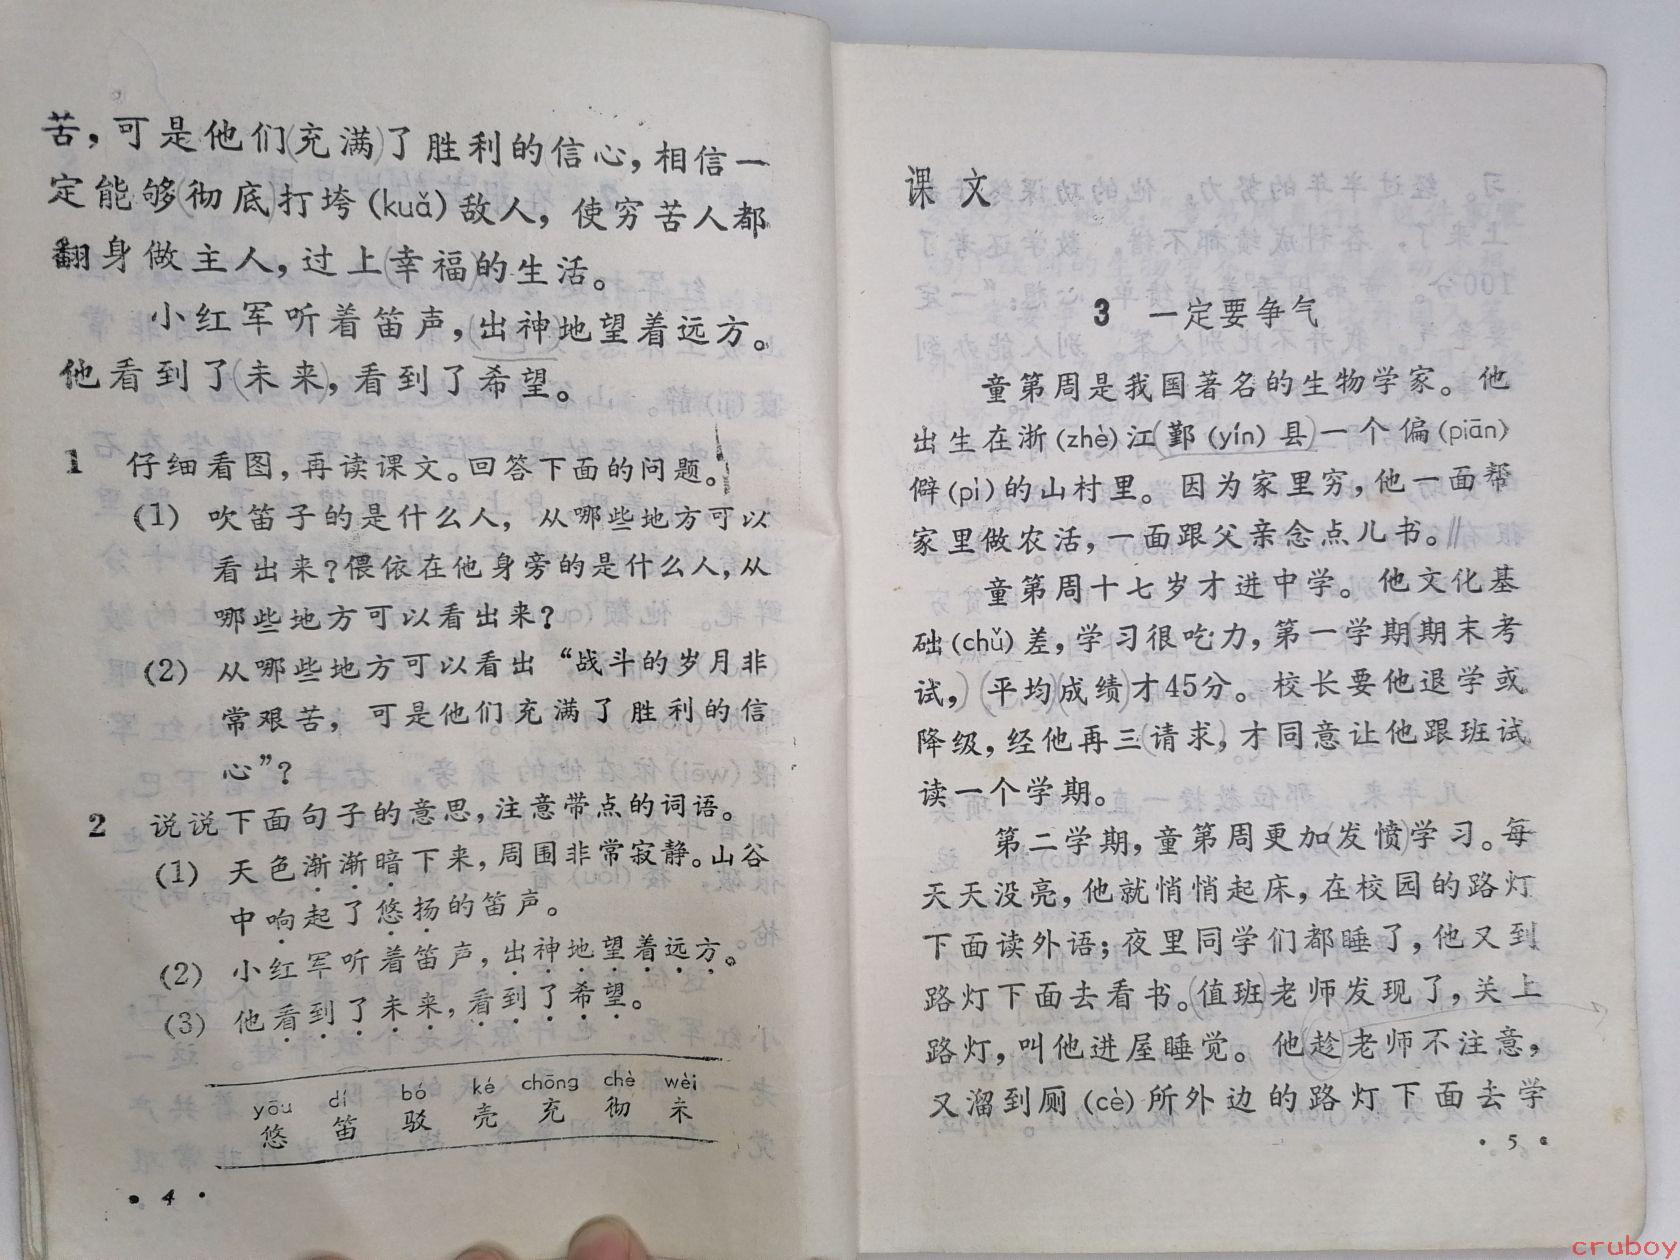 苦，可是他们充满了胜利的信心，相信一
定能够彻底打垮(kuǎ)敌人，使穷苦人都
翻身做主人，过上幸福的生活。
小红军听着笛声，出神地望着远方。
他看到了未来，看到了希望。
1 仔细看图，再读课文。回答下面的问题。
(1) 吹笛子的是什么人，从哪些地方可以
看出来？偎依在他身旁的是什么人，从
哪些地方可以看出来？
(2) 从哪些地方可以看出“战斗的岁月非
常艰苦，可是他们充满了胜利的信
心”？
2 说说下面句子的意思，注意带点的词语。
(1) 天色渐渐暗下来，周围非常寂静。山谷
中响起了悠扬的笛声。
(2) 小红军听着笛声，出神地望着远方。
(3) 他看到了未来，看到了希望。
yōu dí bó ké chōng chè wèi
悠 笛 驳 壳 充 彻 未
·4·
课文
3 一定要争气
童第周是我国著名的生物学家。他
出生在浙(zhè)江鄞(yín)县一个偏(piān)
僻(pì)的山村里。因为家里穷，他一面帮
家里做农活，一面跟父亲念点儿书。
童第周十七岁才进中学。他文化基
础(chǔ)差，学习很吃力，第一学期期末考
试，平均成绩才45分。校长要他退学或
降级，经他再三请求，才同意让他跟班试
读一个学期。
第二学期，童第周更加发愤学习。每
天天没亮，他就悄悄起床，在校园的路灯
下面读外语；夜里同学们都睡了，他又到
路灯下面去看书。值班老师发现了，关上
路灯，叫他进屋睡觉。他趁老师不注意，
又溜到厕(cè)所外边的路灯下面去学
·5·
cruboy